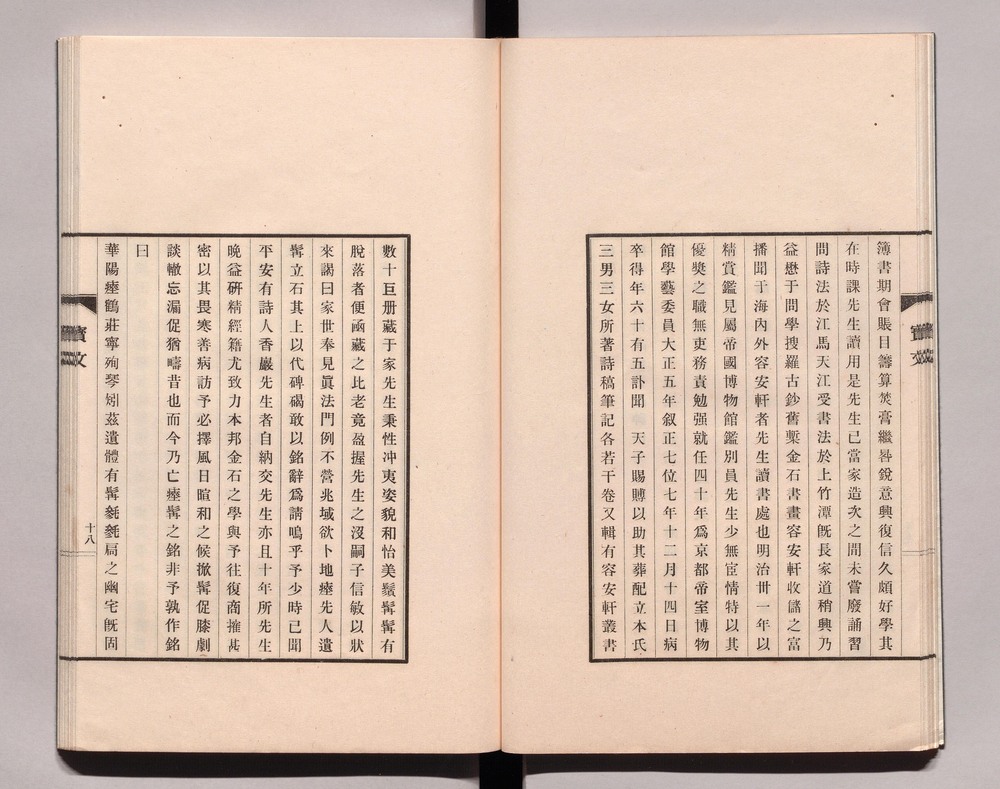 簿書期會賬目籌算焚膏繼晷銳意興復信久頗好學其
在時課先生讀用是先生已當家造次之間未嘗廢誦習
問詩法於江馬天江受書法於上竹潭旣長家道稍興乃
益懋于問學搜羅古鈔舊槧金石書畫容安軒收儲之富
播聞于海內外容安軒者先生讀書處也明治丗一年以
精賞鑑見屬帝國博物館鑑別員先生少無宦情特以其
優獎之職無吏務責勉强就任四十年爲京都帝室博物
館學藝委員大正五年叙正七位七年十二月十四日病
卒得年六十有五訃聞 天子賜賻以助其葬配立本氏
三男三女所著詩稿筆記各若干卷又輯有容安軒叢書
數十巨册藏于家先生秉性冲夷姿貌和怡美鬚髯髯有
脫落者便函藏之比老竟盈握先生之沒嗣子信敏以狀
來謁曰家世奉見眞法門例不營兆域欲卜地瘞先人遺
髯立石其上以代碑碣敢以銘辭爲請嗚乎予少時已聞
平安有詩人香巖先生者自納交先生亦且十年所先生
晚益硏精經籍尤致力本邦金石之學與予往復商搉甚
密以其畏寒善病訪予必擇風日暄和之候撤髯促膝劇
談轍忘漏促猶疇昔也而今乃亡瘞髯之銘非予孰作銘
曰
華陽瘞鶴莊寧殉琴矧茲遺體有髯毿毿扃之幽宅旣固
十八
寶
文